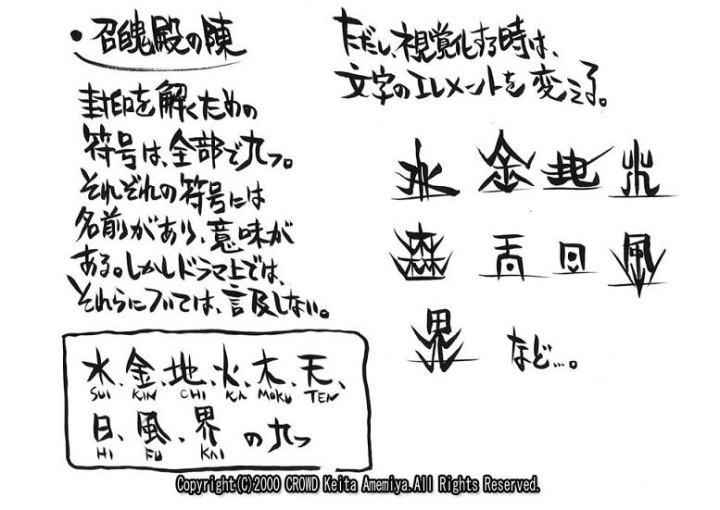 ・召魄殿の陳
封印を解くための
符号は、全部で九つ。
それぞれの符号には
名前があり、意味が
ある。しかしドラマ上では、
それらについては、言及しない。
水、金、地、火、木、天、
SUI KIN CHI KA MOKU TEN
日、風、界の九つ
HI FU KAI
ただし、視覚化する時は、
文字のエレメントを変える。
水 金 地 火
森 天 日 風
界 など…。
Copyright(C)2000 CROWD Keita Amemiya.All Rights Reserved.